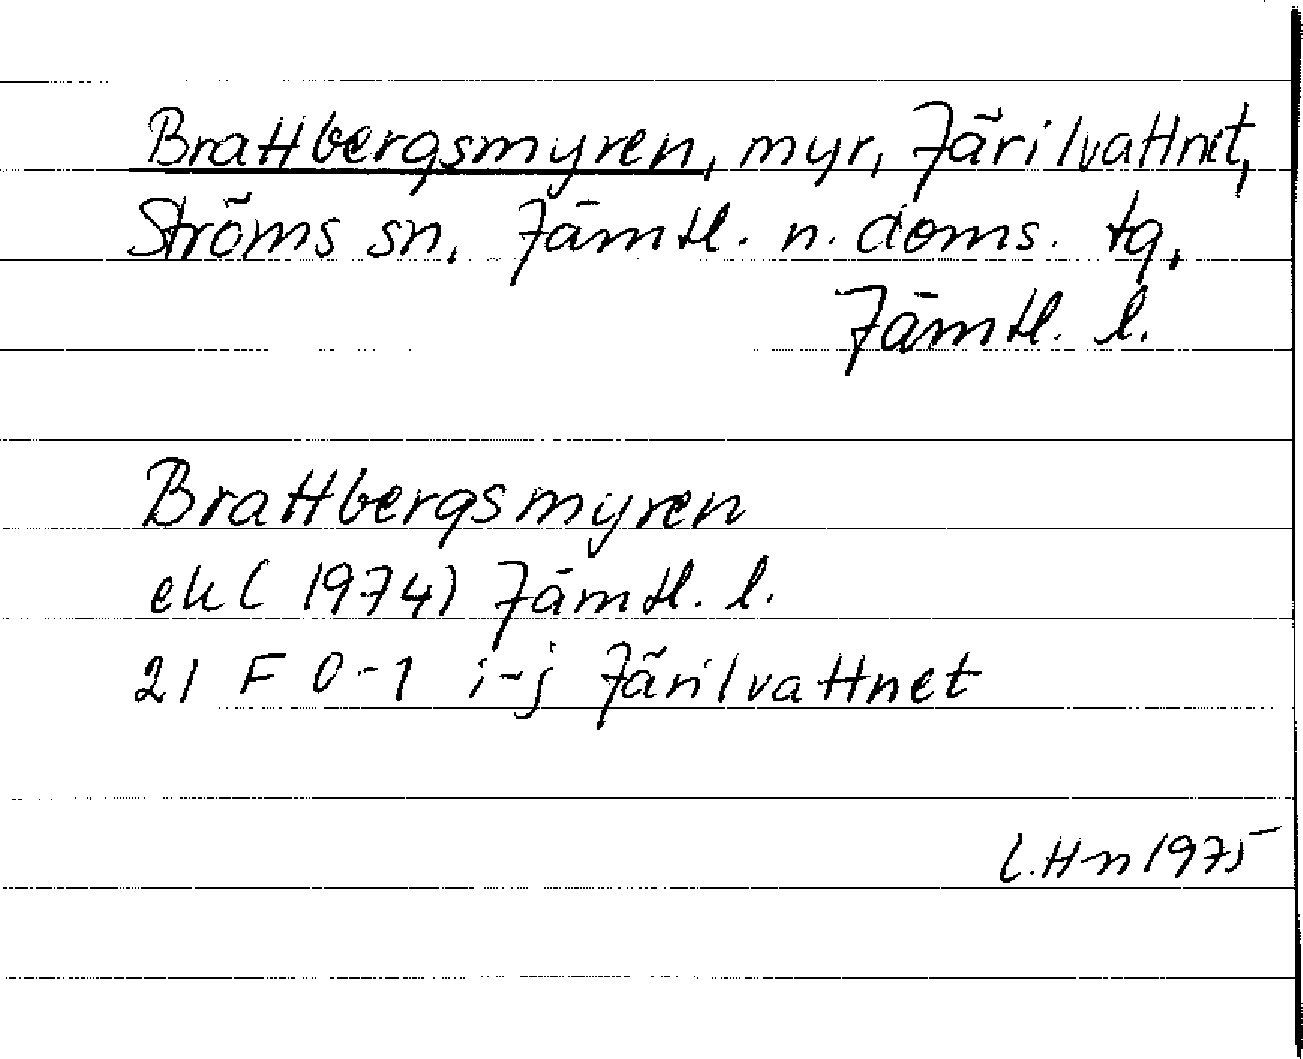 Brattbergsmyren, myr, Järilvattnet,
Ströms sn, Jämtl. n. doms. tg,
Jämtl. l.
Brattbergsmyren
ek (1974) Jämtl. l.
21 F 0-1 i-j Järilvattnet
L.Hn 1975